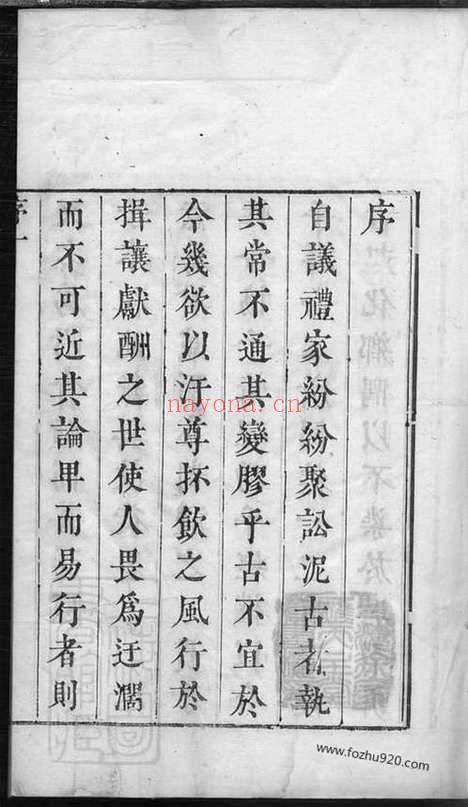 序
自議禮家紛紛聚訟泥古者執
其常不通其變膠乎古不宜於
今幾欲以汙尊抔飲之風行於
揖讓獻酬之世使人畏爲迂濶
而不可近其論卑而易行者則
序一
nayona.cn
www.fozhu920.com